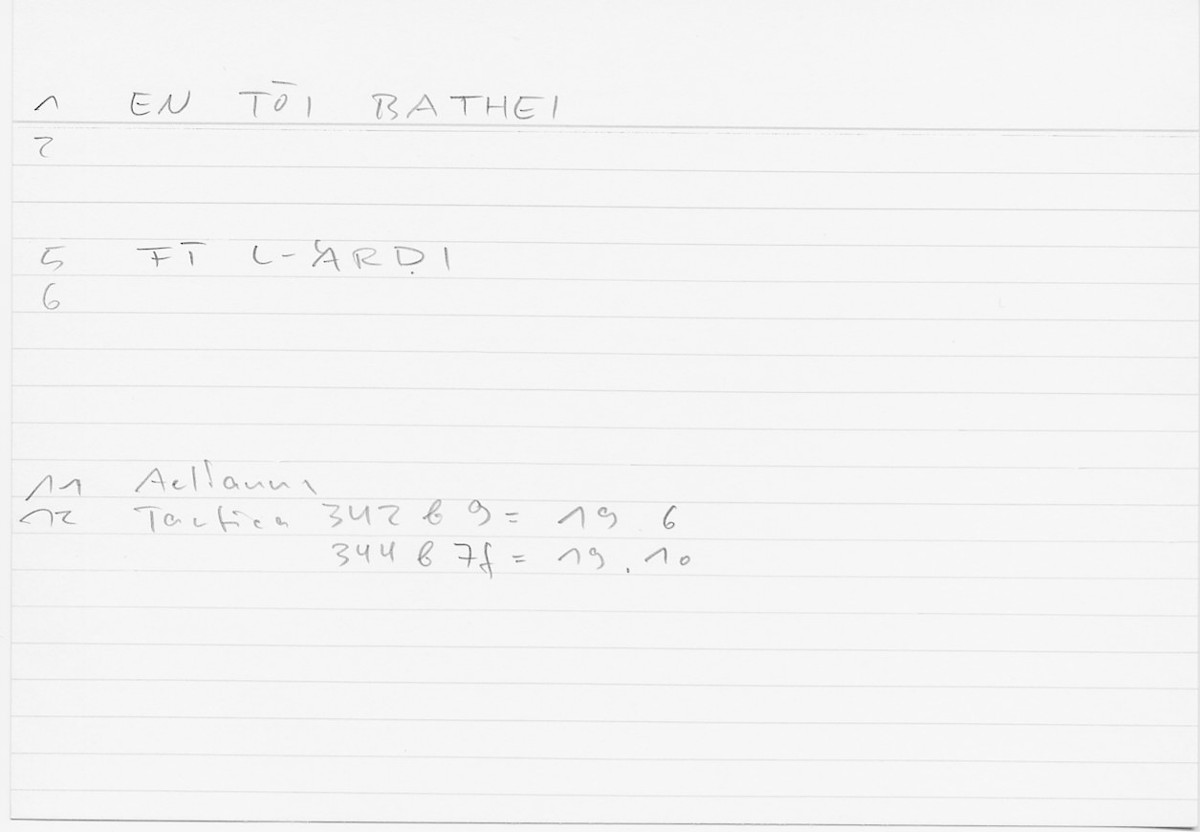 1 EN TŌI BATHEI
2
5
6
11 Aelianus
12 Tactica 342 b 9 = 19 6
344 b 7f = 19.10